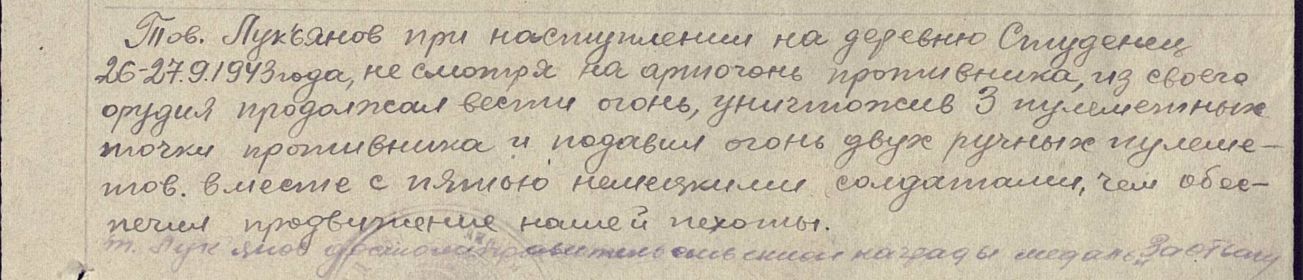 Тов. Лукъянов при наступлении на деревню Студенец
26-27.9.1943 года, не смотря на артогонь противника, из своего
орудия продолжал вести огонь, уничтожив 3 пулеметных
точки противника и подавил огонь двух ручных пулеме-
тов. вместе с пятью немецкими солдатами, чем обес-
печил продвижение нашей пехоты.
т. Лукъянов достоин правительственной награды медаль "За отвагу